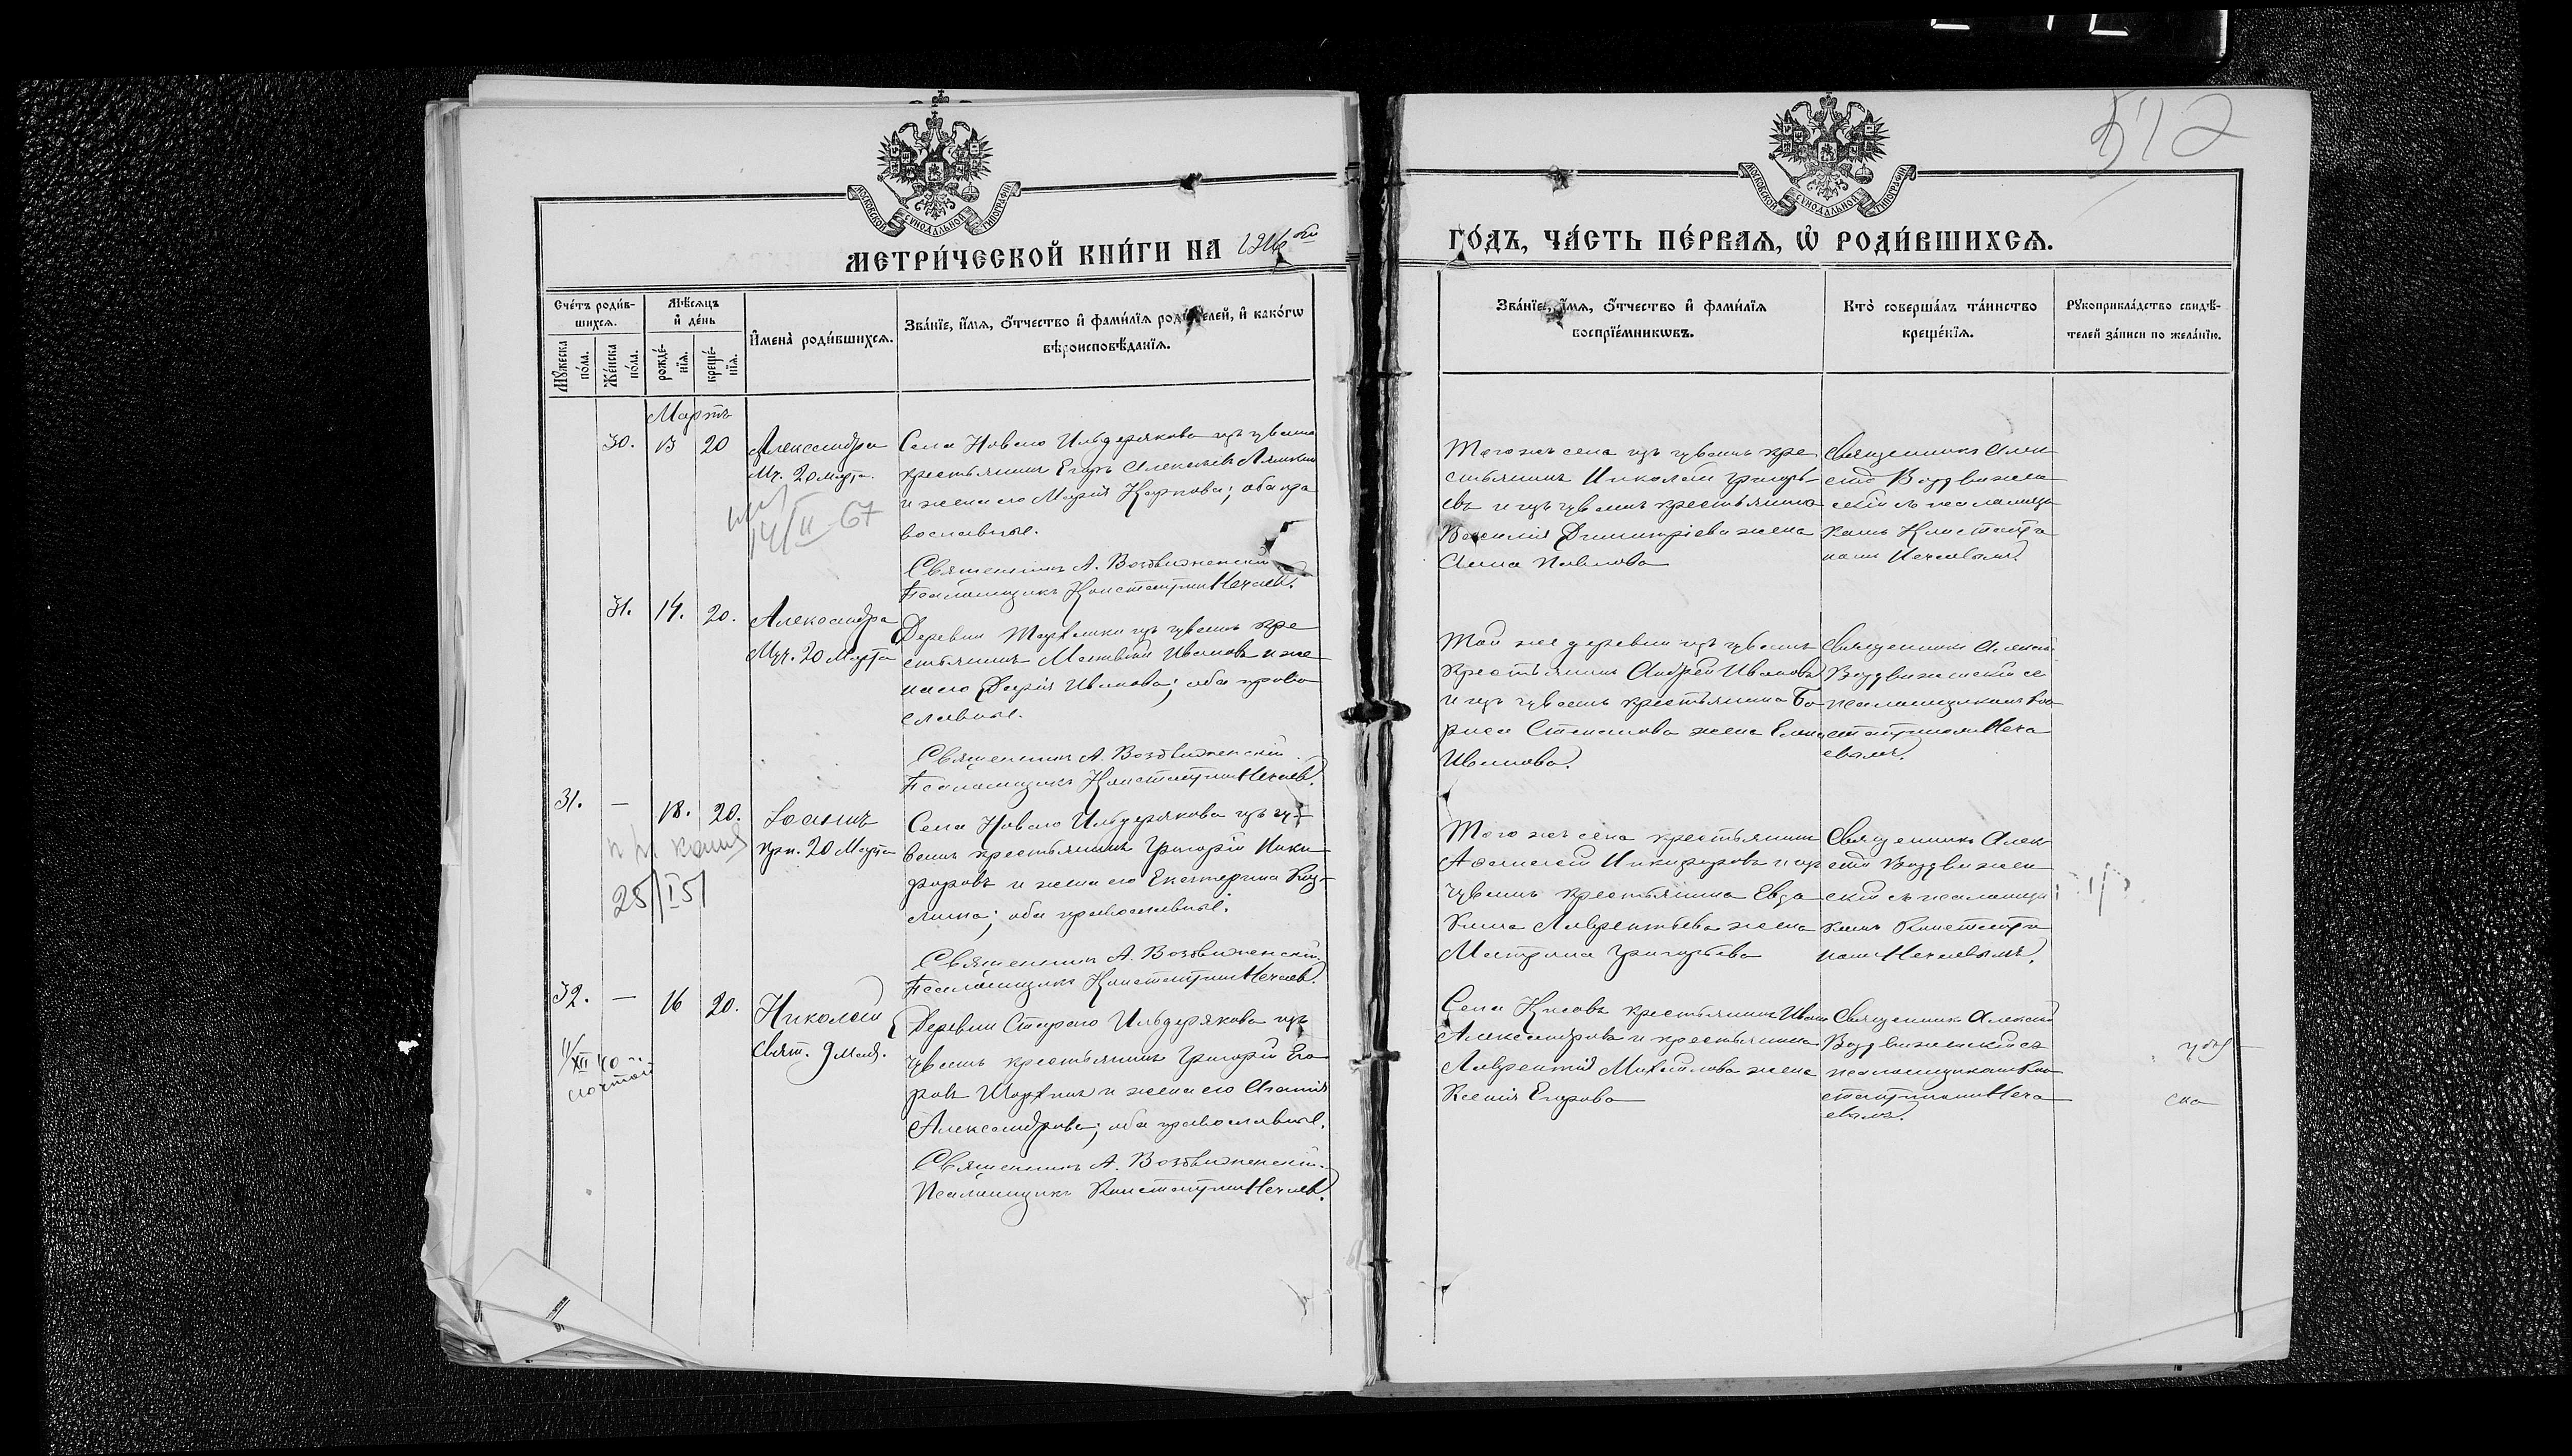 512
МОСКОВСКОЙ СѴНОДАЛЬНОЙ ТИПОГРАФІИ
МОСКОВСКОЙ СѴНОДАЛЬНОЙ ТИПОГРАФІИ
МЕТРИ́ЧЕСКОЙ КНИ́ГИ НА
ГО́ДЪ, ЧА́СТЬ ПЕ́РВАЯ, Ѡ РОДИ́ВШИХСЯ.
Сче́тъ роди́в-
шихся.
Му́жеска по́ла.
Же́нска по́ла.
Мѣ́сяцъ
и де́нь
рожде́-
нїя.
креще́-
нїя.
Имена̀ роди́вшихся.
Зва́нїе, и́мя, о́тчество и фами́лїя роди́телей, и како́гѡ
вѣроисповѣ́данїя.
Зва́нїе, и́мя, о́тчество и фами́лїя
воспрїе́мникѡвъ.
Кто̀ соверша́лъ та́инство
креще́нїя.
Рукоприкла́дство свидѣ́-
телей за́писи по жела́нїю.
Мартъ
30. 13 20 Александра
Мч. 20 марта.
14/II-67
Села Новаго Ильдерякова изъ чувашъ
крестьянинъ Егоръ Алексѣевъ
и жена его Марія Карпова; оба пра
вославные.
Священникъ А. Воздвиженскій
Псаломщикъ Константинъ Нечаевъ.
Того же села изъ чувашъ кре
стьянинъ Николай Григорь-
евъ и изъ чувашъ крестьянина
Василія Димитріева жена
Анна Павлова
Священникъ Алек
сѣй Воздвижен
скій съ псаломщи
комъ Константи
номъ Нечаевымъ.
31. 14. 20. Александра
Мч. 20 Марта
Деревни изъ чувашъ кре
стьянинъ Матвѣй Ивановъ и же
на его Дарія Иванова; оба право
славные.
Священникъ А. Воздвиженскій.
Псаломщикъ Константинъ Нечаевъ.
Той же деревни изъ чувашъ
крестьянинъ Андрей Ивановъ
и изъ чувашъ крестьянина Бо
риса Степанова жена Елена
Иванова.
Священникъ Алексѣй
Воздвиженскій съ
псаломщикомъ Кон
стантиномъ Неча
евымъ.
31. — 18. 20. Іоаннъ
прп. 20 Марта
копия
25/I 51
Села Новаго Ильдерякова изъ чу-
вашъ крестьянинъ Григорій Ники
форовъ и жена его Екатерина Куз-
мина; оба православные.
Священникъ А. Воздвиженскій.
Псаломщикъ Константинъ Нечаевъ.
Того же села крестьянинъ
Аѳанасій Никифоровъ и изъ
чувашъ крестьянина Евдо
кима Лаврентьева жена
Матрона Григорьева
Священникъ Алек
сѣй Воздвижен
скій съ псаломщи
комъ Константи
номъ Нечаевымъ.
32. — 16 20. Николай
Свят. 9 мая.
11/XII 40
почтой
Деревни Стараго Ильдерякова изъ
чувашъ крестьянинъ Григорій Его
ровъ и жена его Агаѳія
Александрова; оба православные.
Священникъ А. Воздвиженскій.
Псаломщикъ Константинъ Нечаевъ.
Села крестьянинъ Иванъ
Александровъ и крестьянина
Лаврентія Михайлова жена
Ксенія Егорова
Священникъ Алексѣй
Воздвиженскій съ
псаломщикомъ Кон
стантиномъ Неча
евымъ.